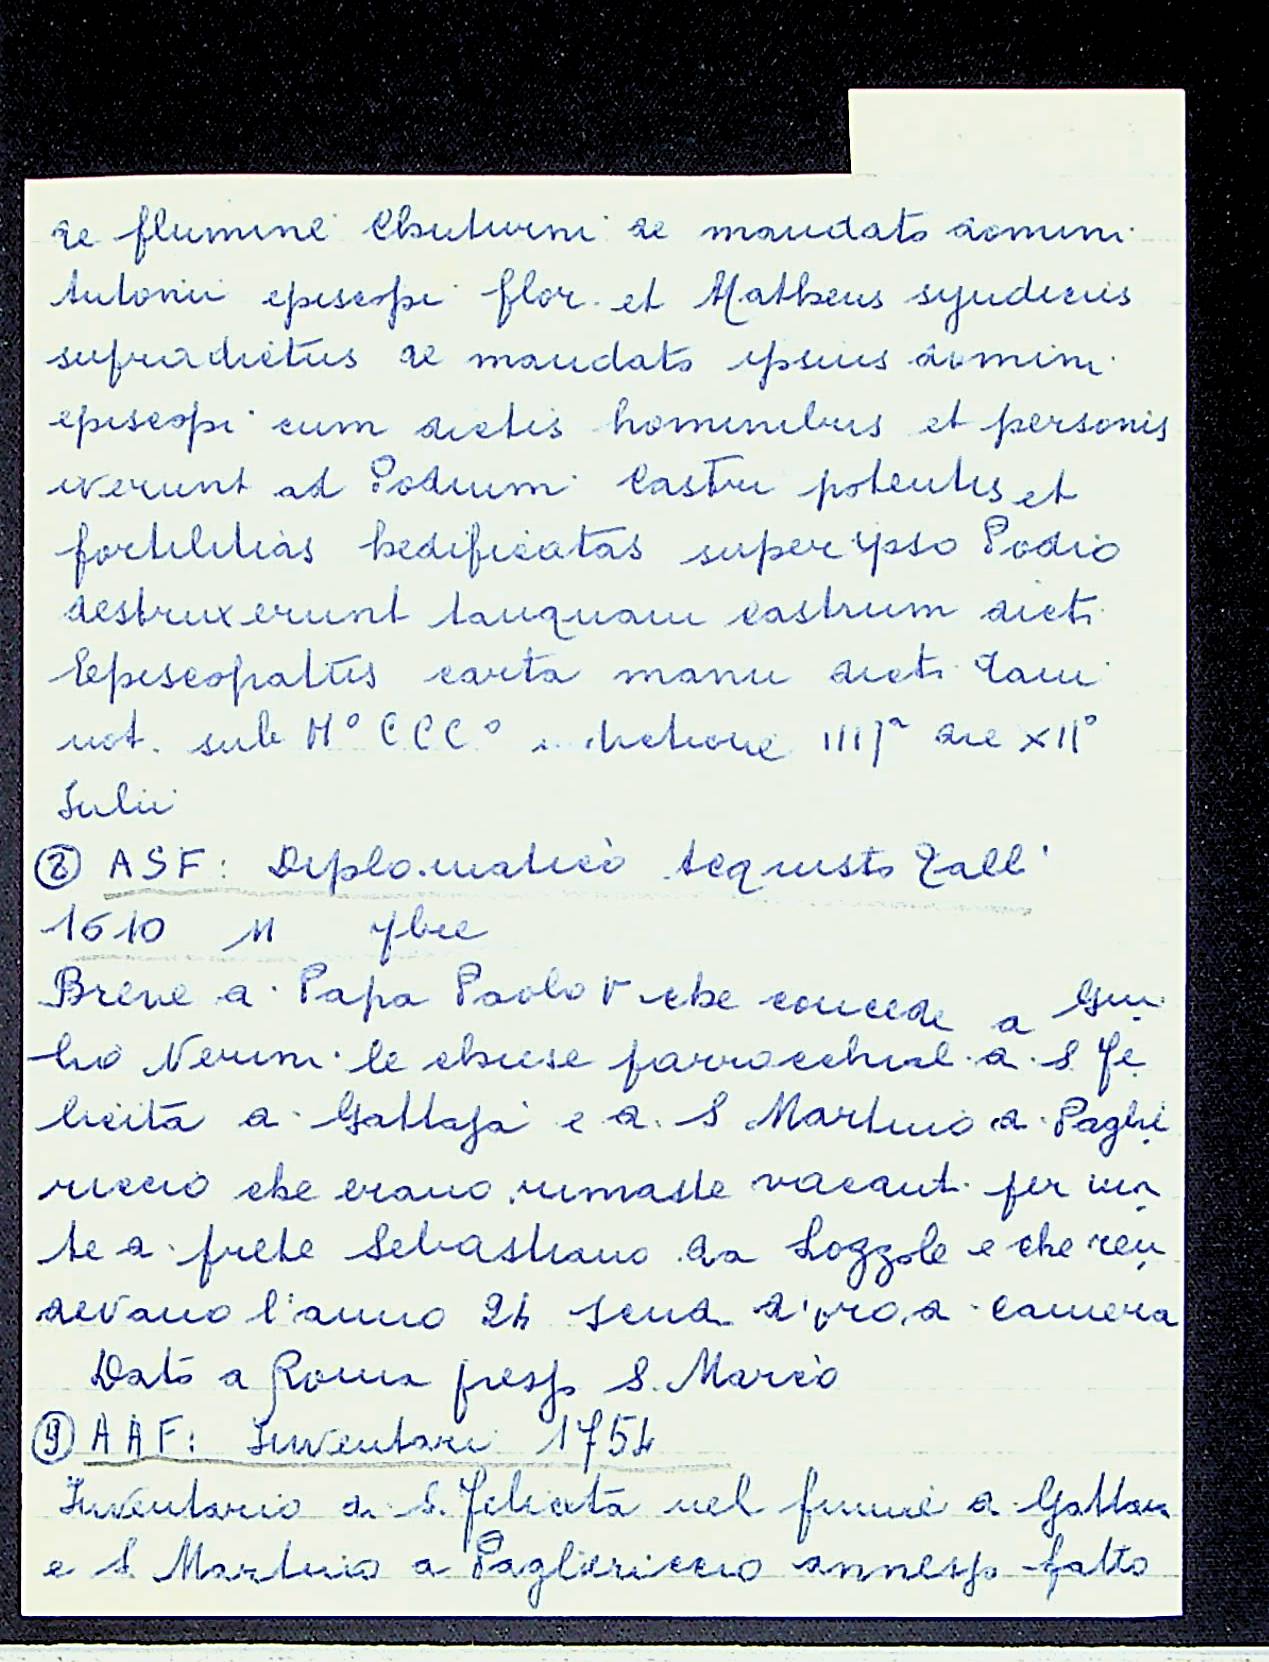 de flumine Ebuturni de mandato domini
Antonii episcopi flor. et Matheus syndicus
supradictus de mandato ipsius domini
episcopi cum dictis hominibus et personis
iverunt ad Podium Castri potentis et
fortilitias hedificatas super ipso Podio
destruxerunt tanquam castrum dicti
Episcopatus carta manu dicti
not. sub M° CCC° indictione IIIJª die XII°
Julii
⑧ ASF: Diplomatico Acquisto Galli
1610 11 7bre
Breve di Papa Paolo V che concede a Giu
lio Nerini le chiese parrocchiali di S Fe
licita a Gattaja e di S Martino a Paglie
riccio che erano rimaste vacanti per mor
te di prete Sebastiano da Lozzole e che ren
devano l'anno 24 scudi d'oro di camera
Dato a Roma presso S. Marco
⑨ AAF: Inventari 1754
Inventario di S. Felicita nel fiume a Gattaia
e S. Martino a Pagliericcio annesso fatto